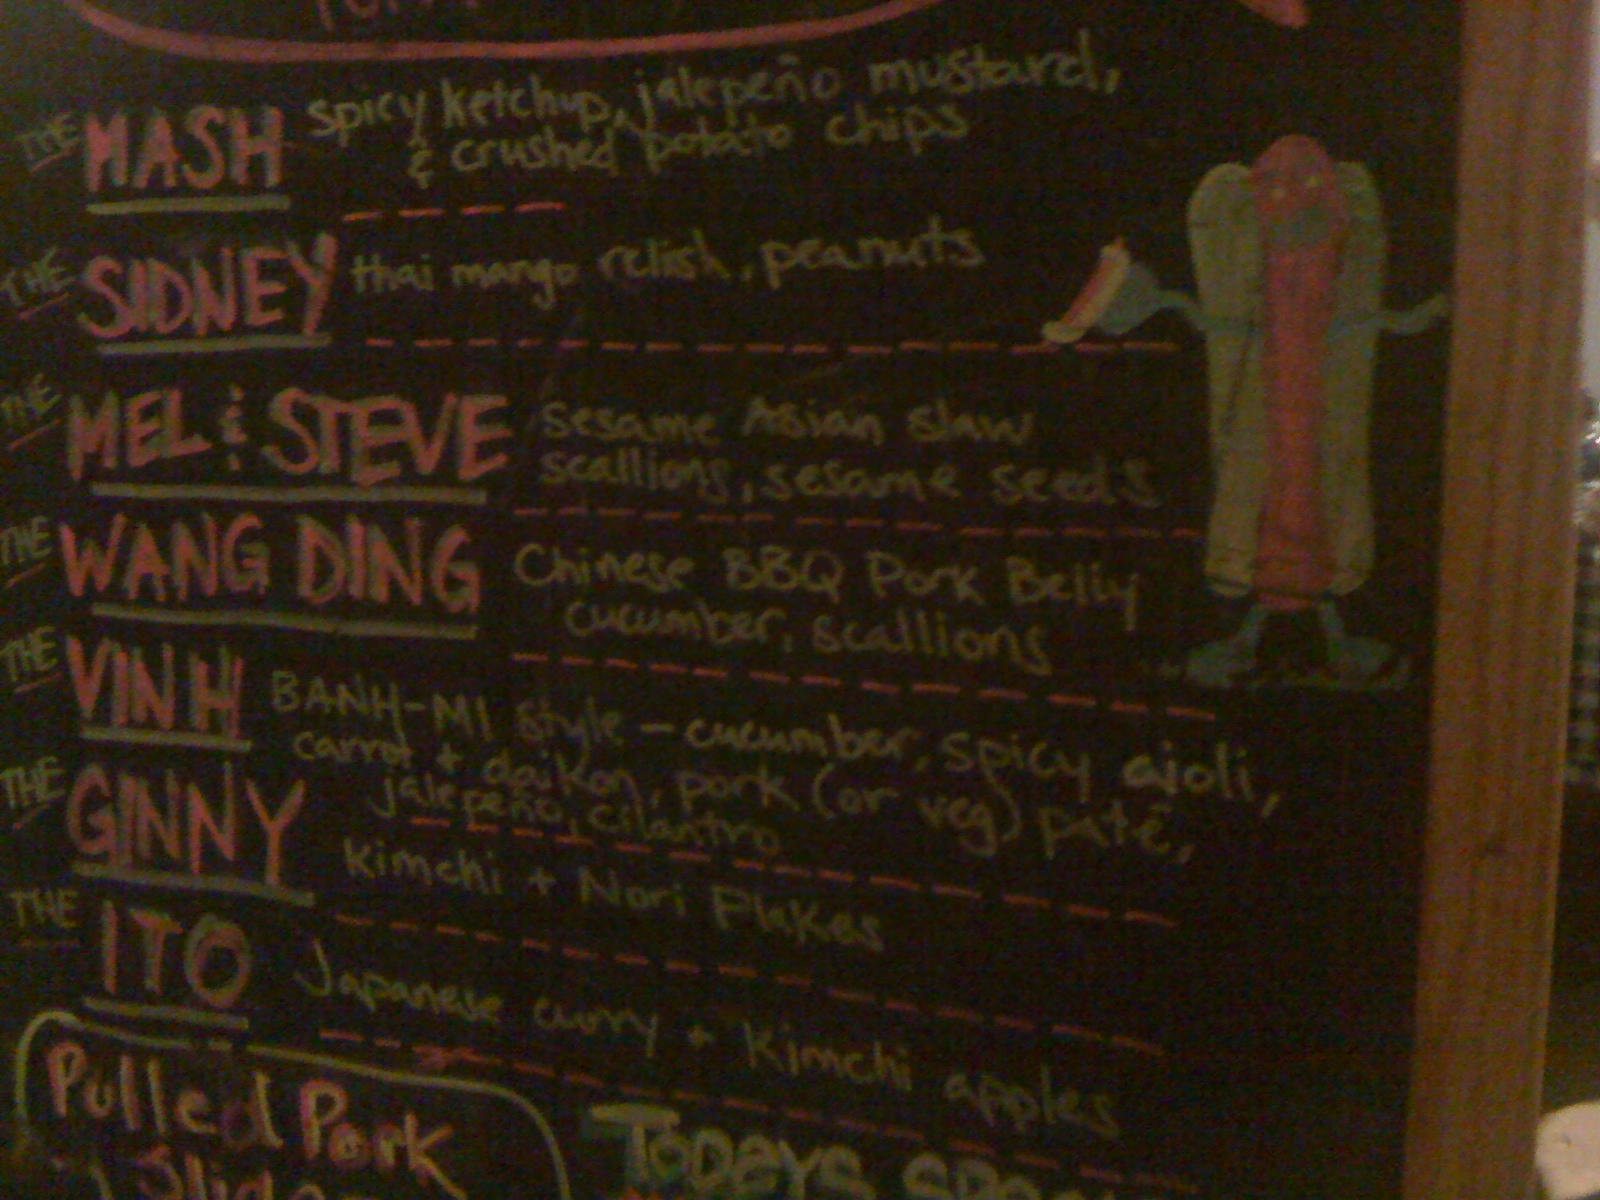 THE MASH spicy ketchup, jalepeño mustard,
& crushed potato chips
THE SIDNEY thai mango relish, peanuts
THE MEL & STEVE sesame Asian slaw
scallions, sesame seeds
THE WANG DING Chinese BBQ Pork Belly
cucumber, scallions
THE VINH BANH-MI style - cucumber, spicy aioli,
carrot + daikon, pork (or veg) pate,
jalepeño, cilantro
THE GINNY Kimchi + Nori Flakes
THE ITO Japanese curry + Kimchi apples
Pulled Pork
TODAYS